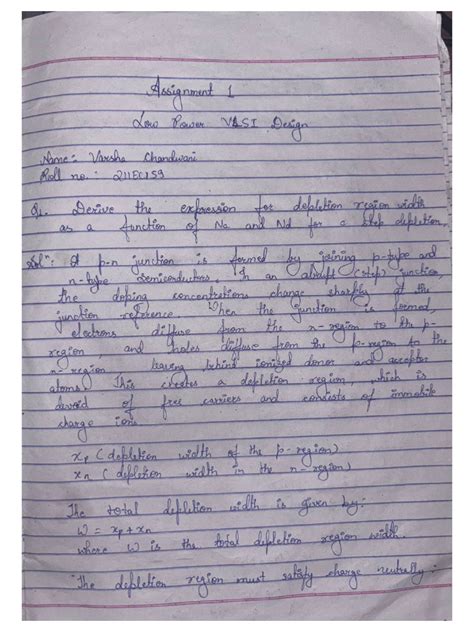 Assignment 1
Low Power VLSI Design
Name:- Varsha Chandwani
Roll no. : 211EC159
Q1. Derive the expression for depletion region width
as a function of Na and Nd for a step depletion.
Solⁿ: A p-n junction is formed by joining p-type and
n-type semiconductors, In an abrupt (step) junction,
the doping concentrations change sharply at the
junction reference. When the junction is formed,
electrons diffuse from the n-region to the p-
region, and holes diffuse from the p-region to the
n-region leaving behind ionized donor and acceptor
atoms. This creates a depletion region, which is
devoid of free carriers and consists of immobile
charge ions.
xp (depletion width of the p-region)
xn (depletion width in the n-region)
The total depletion width is given by:
W = xp + xn
where W is the total depletion region width.
The depletion region must satisfy charge neutrally: